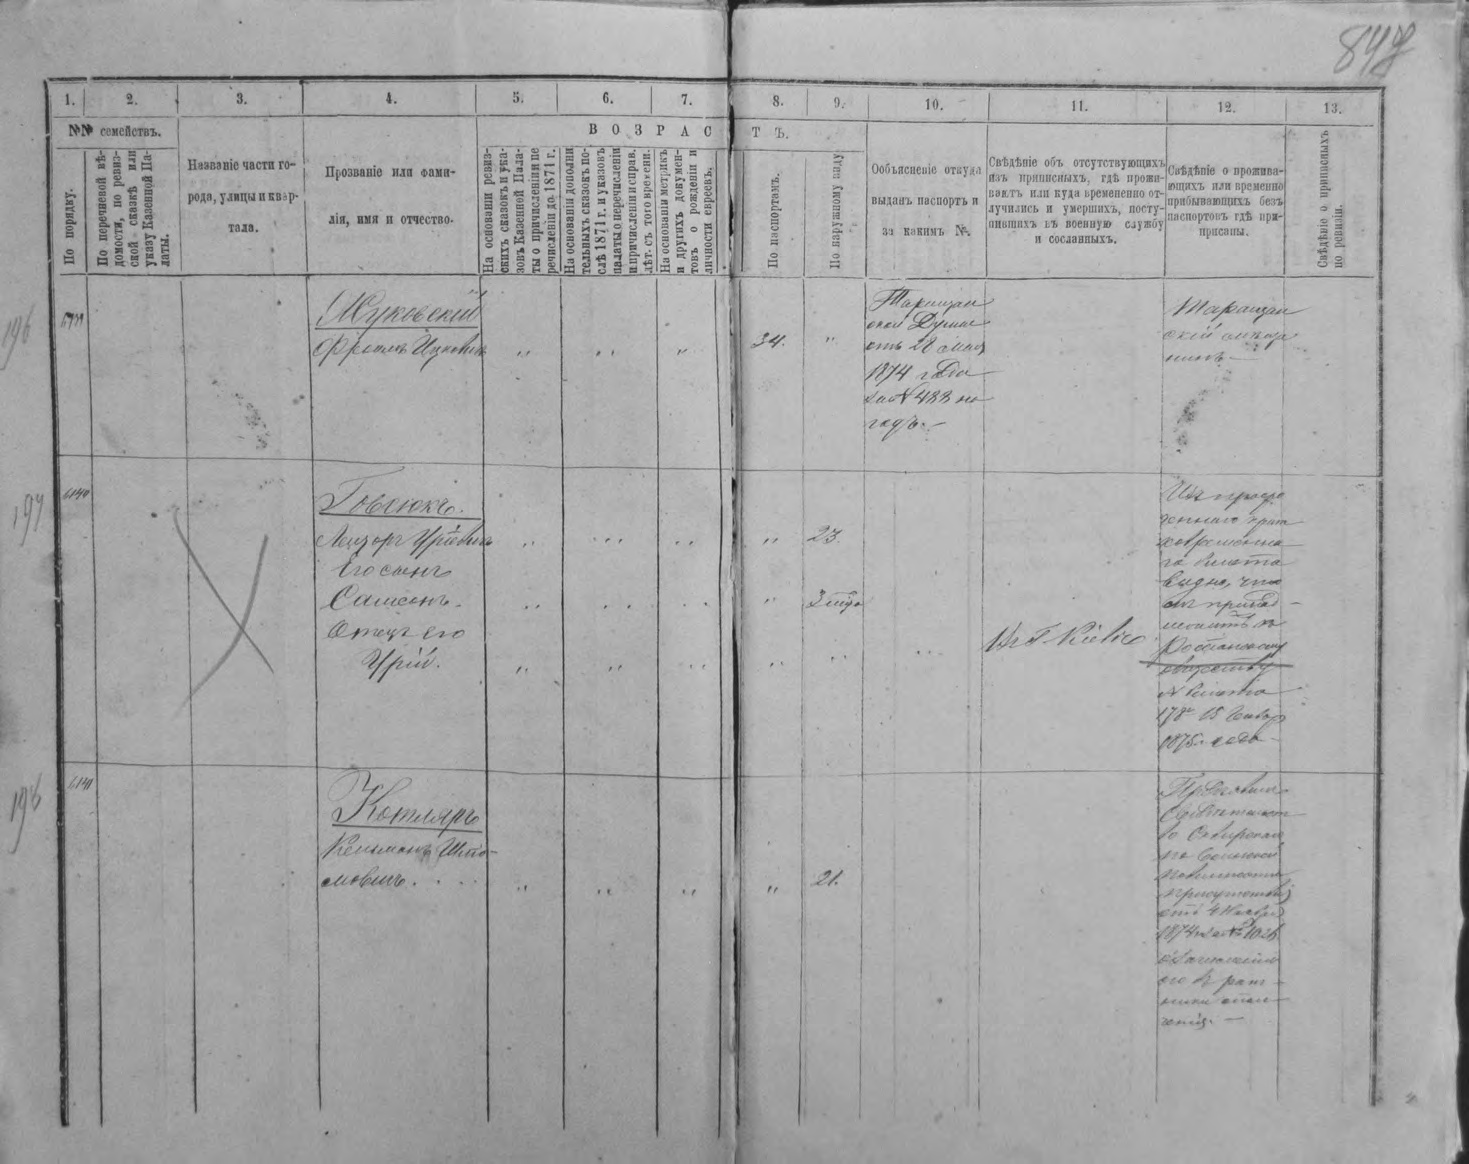 1. 2. 3. 4. 5. 6. 7. 8. 9. 10. 11. 12. 13.
№№ семействъ.
ВОЗРАСТЪ.
По порядку.
По перечневой вѣ-
домости, по ревиз-
ской сказкѣ или
указу Казенной Па-
латы.
Названіе части го-
рода, улицы и квар-
тала.
Прозваніе или фами-
лія, имя и отчество.
На основаніи ревиз-
скихъ сказокъ и ука-
зовъ Казенной Пала-
ты о причисленіи и пе
речисленіи до 1871 г.
На основаніи дополни
тельныхъ сказокъ по-
слѣ 1871 г. и указовъ
палаты о перечисленіи
и причисленіи и справ.
лѣт. съ того времени.
На основаніи метрикъ
и другихъ докумен-
товъ о рожденіи и
личности евреевъ.
По паспортамъ.
По наружному виду
Объясненіе откуда
выданъ паспортъ и
за какимъ №.
Свѣдѣніе объ отсутствующихъ
изъ приписныхъ, гдѣ прожи-
ваютъ или куда временно от-
лучились и умершихъ, посту-
пившихъ въ военную службу
и сосланныхъ.
Свѣдѣніе о прожива-
ющихъ или временно
прибывающихъ безъ
паспортовъ гдѣ при-
писаны.
Свѣдѣніе о приписныхъ
по ревизіи.
196
Жуковскій
Фроимъ Ицковичъ
34.
Таращан
ской Думы
отъ 28 мая
1874 года
за № 488 на
годъ.
Таращан
скій мѣща
нинъ
197
6140
Говсюкъ.
Лейзоръ Уріевичъ
23.
Его сынъ
Самсонъ.
3 года
Отецъ его
Урій.
Въ г. Кіевѣ
видно, что
онъ принад-
лежитъ къ
обществу
№ билета
178 15 Январ
1875 года
198
6141
Котляръ
Кельманъ Шло-
мовичъ....
21.
Предъявилъ
Свидѣтельст
во Сквирска
го Воинской
повинности
присутствія
отъ 4 Ноября
1874 за №
о зачисленіи
его въ рат-
ники опол-
ченія.